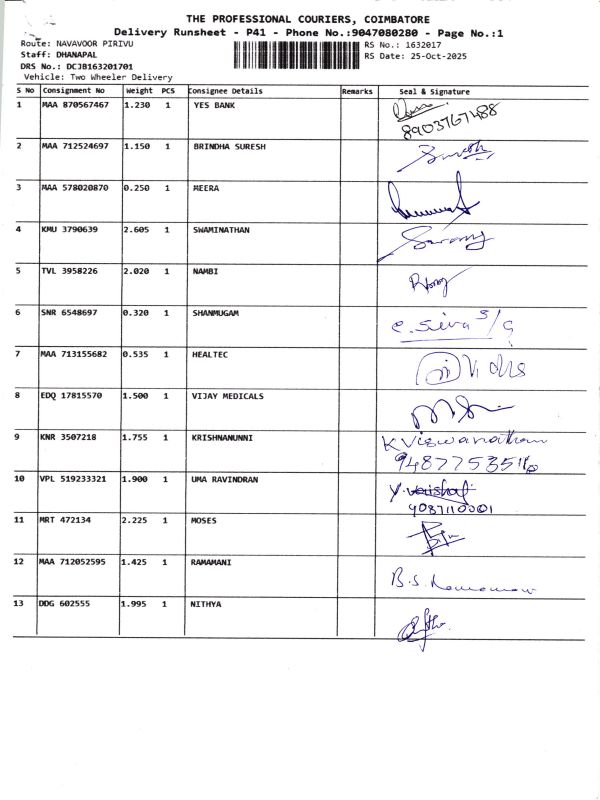 THE PROFESSIONAL COURIERS, COIMBATORE
Delivery Runsheet - P41 - Phone No.:9047080280 - Page No.:1
Route: NAVAVOOR PIRIVU RS No.: 1632017
Staff: DHANAPAL RS Date: 25-Oct-2025
DRS No.: DCJB163201701
Vehicle: Two Wheeler Delivery
S No Consignment No Weight PCS Consignee Details Remarks Seal & Signature
1 MAA 870567467 1.230 1 YES BANK
8903767488
2 MAA 712524697 1.150 1 BRINDHA SURESH Suresh
3 MAA 578020870 0.250 1 MEERA
4 KMU 3790639 2.605 1 SWAMINATHAN
5 TVL 3958226 2.020 1 NAMBI
6 SNR 6548697 0.320 1 SHANMUGAM e. Siva S/G
7 MAA 713155682 0.535 1 HEALTEC
8 EDQ 17815570 1.500 1 VIJAY MEDICALS
9 KNR 3507218 1.755 1 KRISHNANUNNI K Viswanathan
10 VPL 519233321 1.900 1 UMA RAVINDRAN
9087110001
11 MRT 472134 2.225 1 MOSES
12 MAA 712052595 1.425 1 RAMAMANI B.S
13 DDG 602555 1.995 1 NITHYA